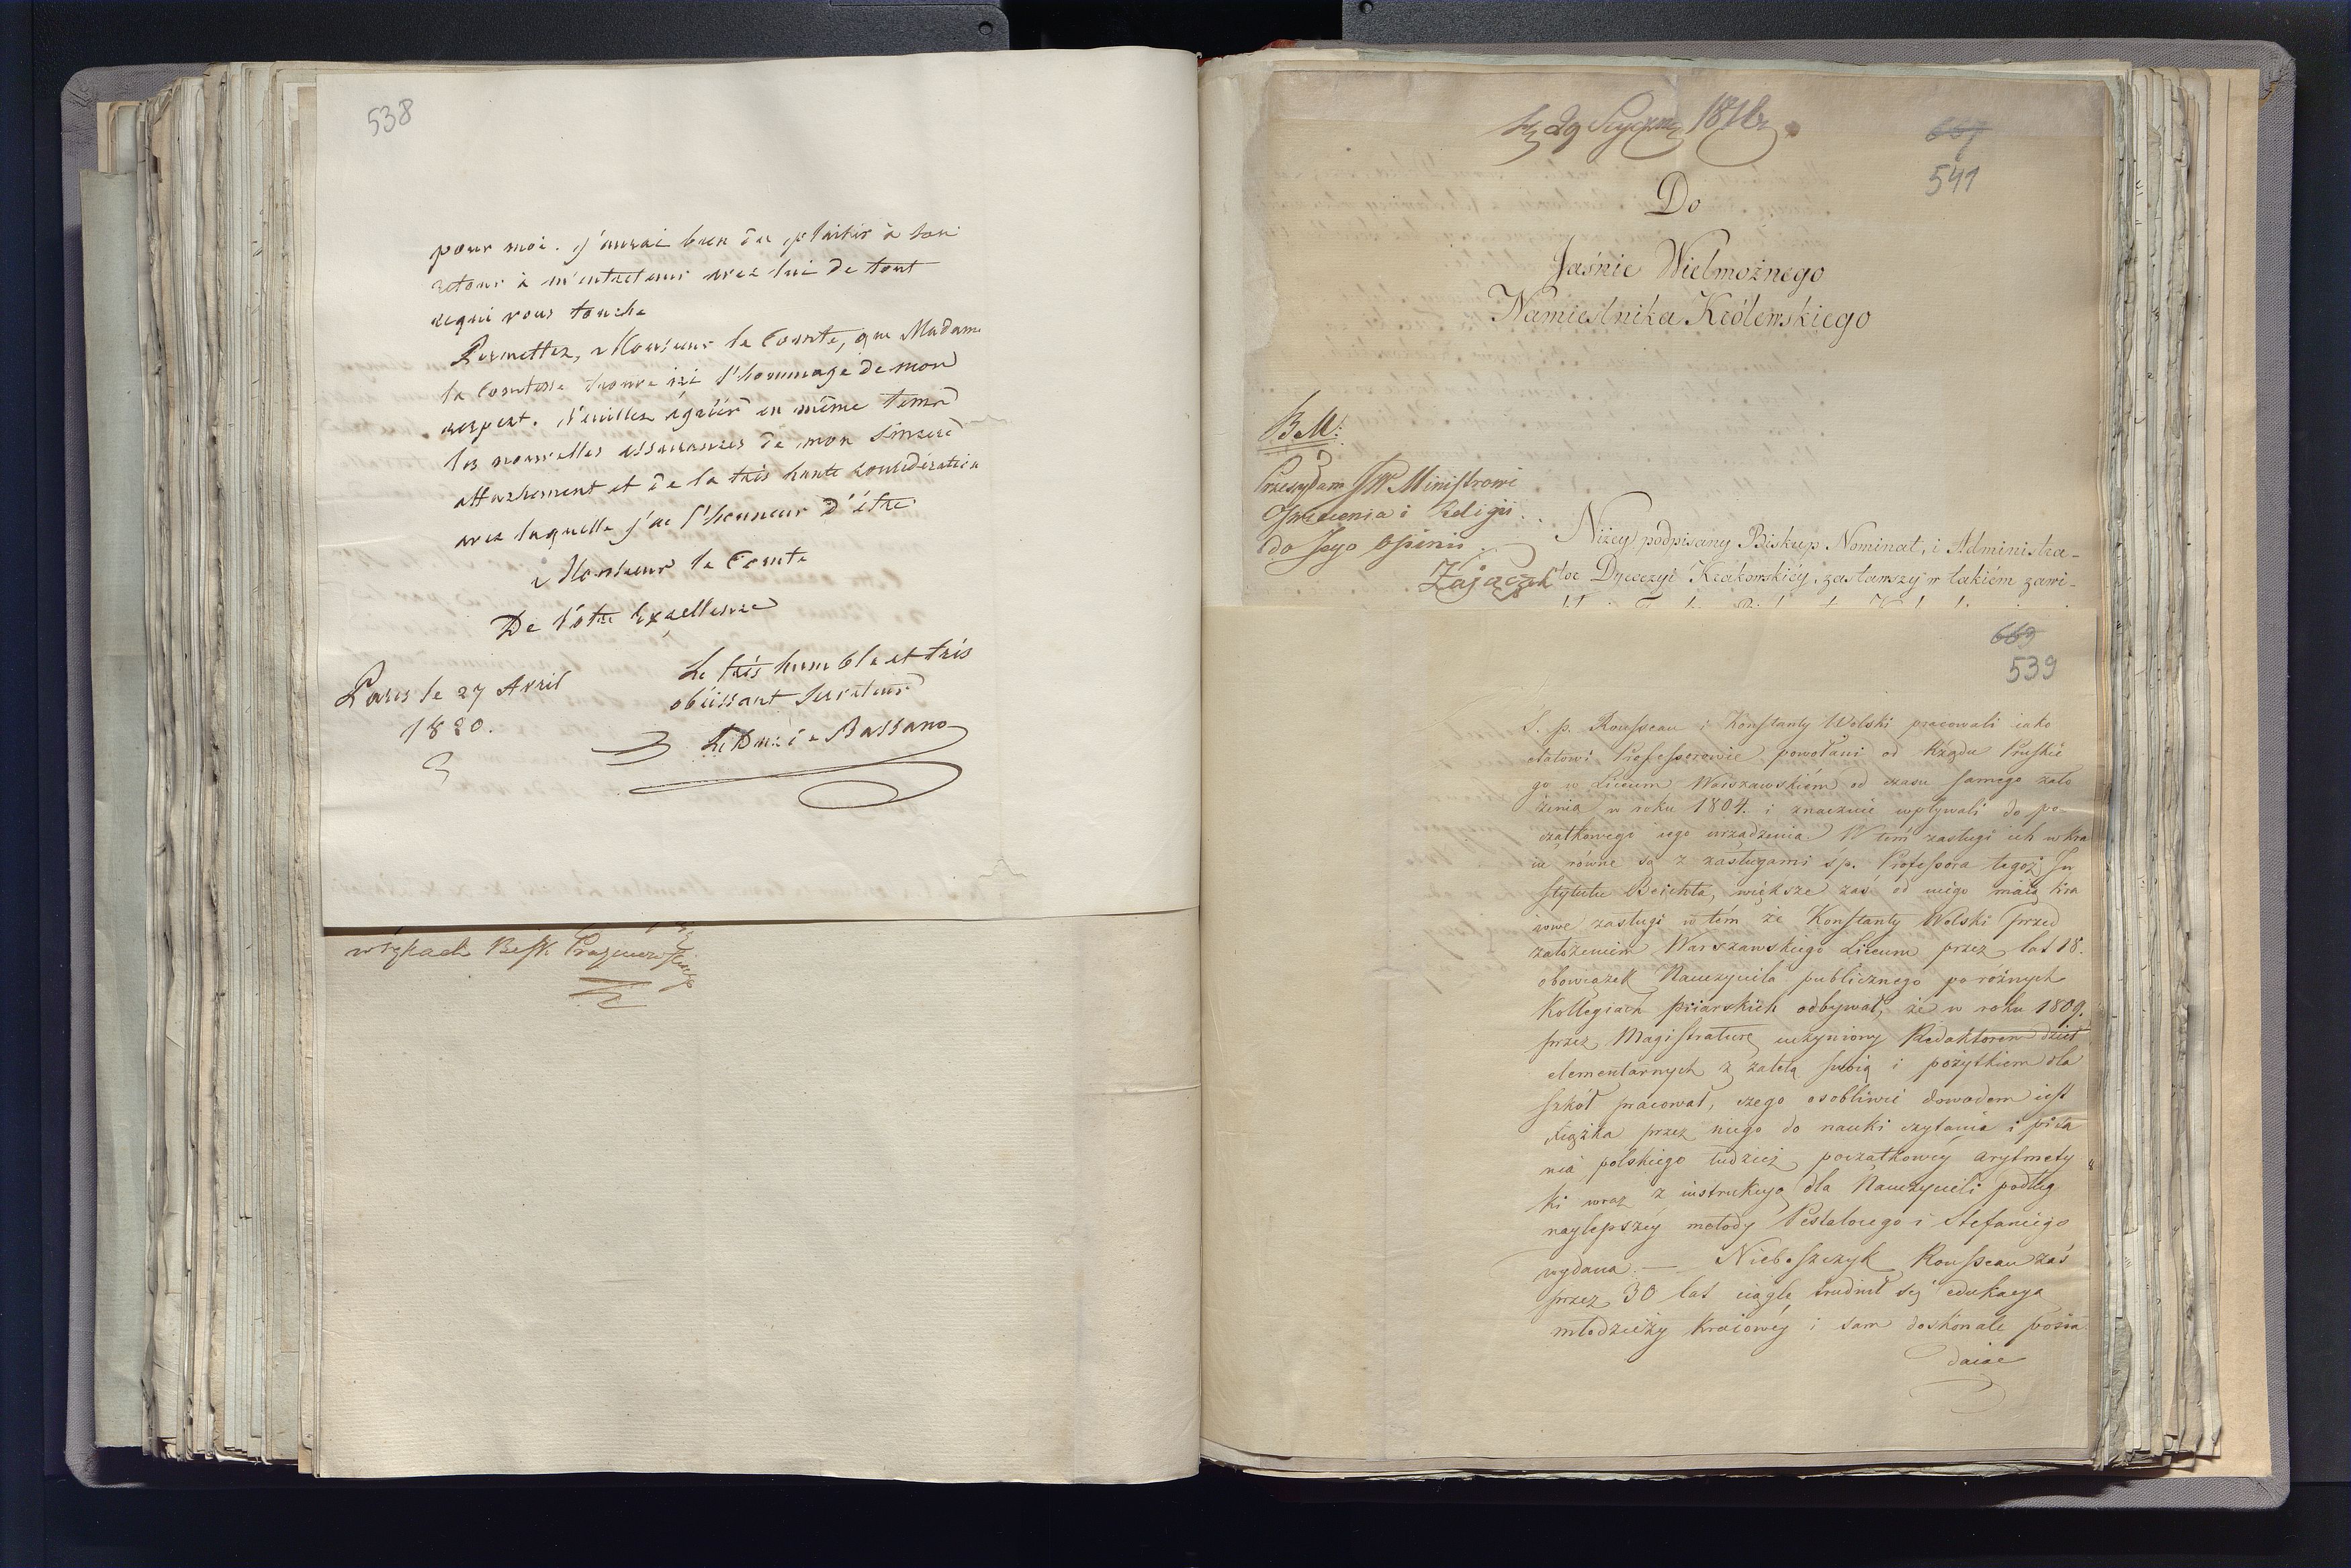 538
pour moi. j'aurai bien du plaisir à son
retour à m'entretenir avec lui de tout
cequi vous touche
Permettez, Monsieur le Comte, que Madame
la Comtesse trouve ici l'hommage de mon
respect. Veuillez agréer en même tems
les nouvelles assurances de mon sincere
attachement et de la très haute considération
avec laquelle j'ai l'honneur d'être
Monsieur le Comte
De Votre Excellence
Le très humble et très
obéissant Serviteur
Paris le 27 Avril
1820.
Le Duc de Bassano
w ręskach Bisk. Prażmowskiego
29 Stycznia
667
541
Do
Jaśnie Wielmożnego
Namiestnika Królewskiego
Przesyłam JW Ministrowi
Oświecenia i Religii
do Jego opinii
Zajączek
Niżey podpisany Biskup Nominat, i Administra-
tor Dyecezyi Krakowskiéy, zastawszy w takiém zawi-
669
539
Ś. p. Rousseau i Konstanty Wolski pracowali iako
etatowi Professorowie powołani od Rządu Pruskie
go w Liceum Warszawskiém od czasu samego zało
żenia w roku 1804. i znacznie wpływali do po-
czątkowego iego urządzenia. W tém zasługi ich w kra
iu równe są z zasługami ś. p. Professora tegoż In
stytutu Beichta, większe zaś od niego maią kra
iowe zasługi w tém że Konstanty Wolski przed
założeniem Warszawskiego Liceum przez lat 18.
obowiązek Nauczyciela publicznego po różnych
Kollegiach piiarskich odbywał, że w roku 1809.
przez Magistraturę uczyniony Redaktorem dzieł
elementarnych z zaletą swoią i pożytkiem dla
szkół pracował, czego osobliwie dowodem iest
xiążka przez niego do nauki czytania i pisa
nia polskiego tudzież początkowey arytmety
ki wraz z instrukcyą dla Nauczycieli podług
naylepszey metody Pestalocego i Stefaniego
wydana. — Nieboszczyk Rousseau zaś
przez 30 lat ciągle trudnił się edukacyą
młodzieży kraiowey i sam doskonale posia
daiąc